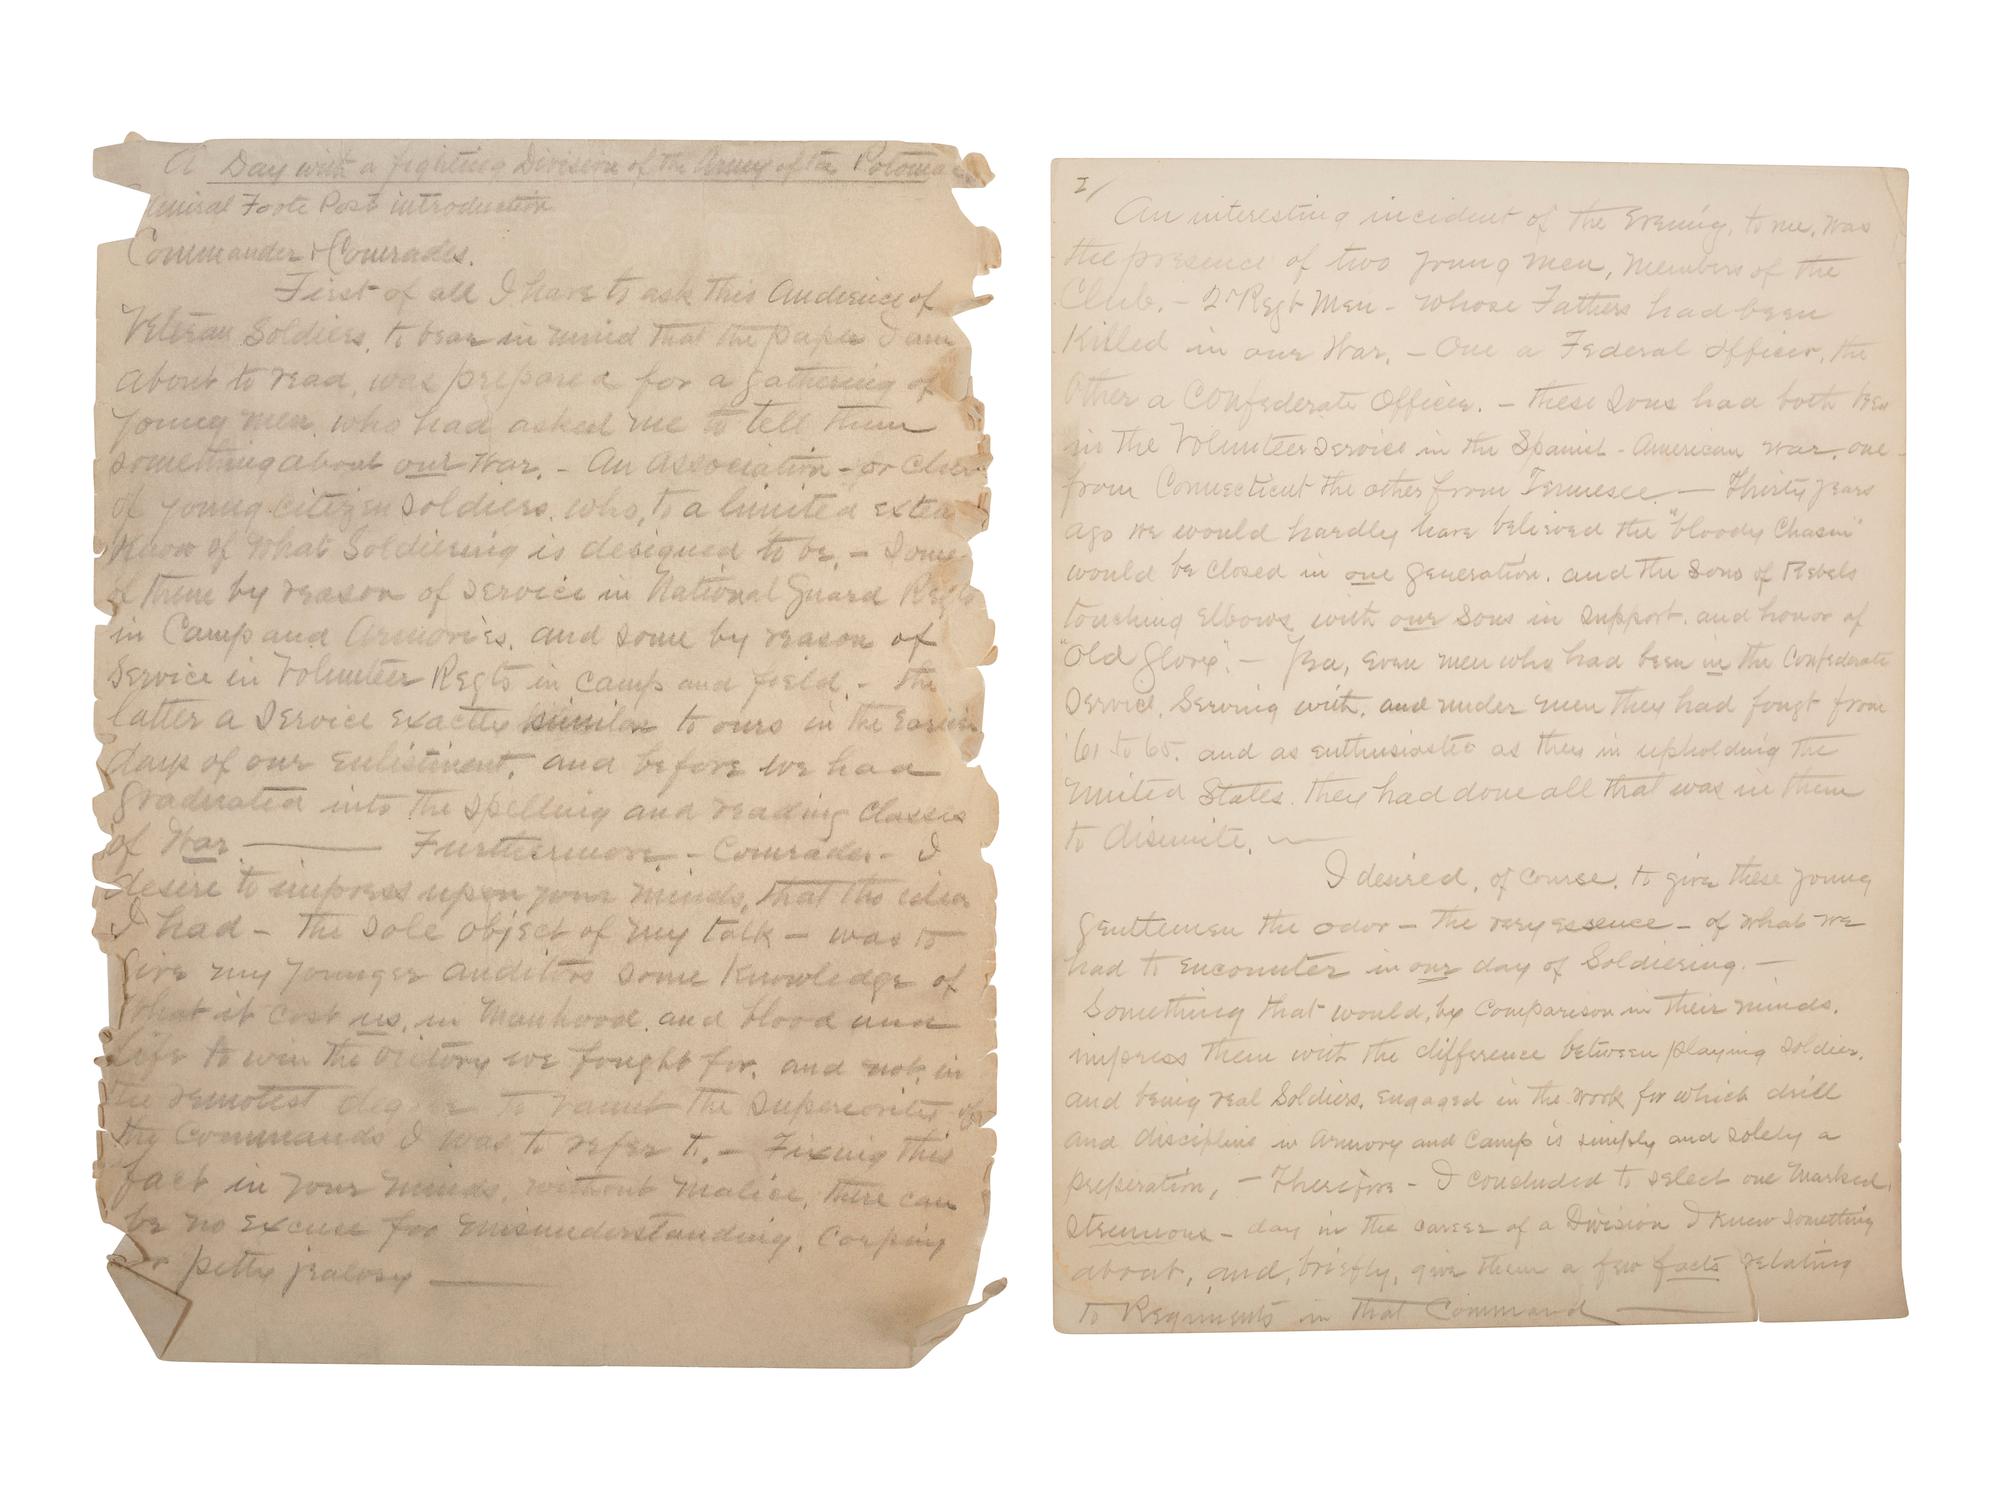 A Day with a fighting Division of the Army of the Potomac
Admiral Foote Post introduction
Commander & Comrades.
First of all I have to ask this Audience of
Veteran Soldiers, to bear in mind that the paper I am
about to read, was prepared for a gathering of
young men, who had asked me to tell them
something about our War. - An Association - or Club
of young citizen Soldiers, who, to a limited exten
know of what Soldiering is designed to be, - Some
of them by reason of service in National Guard Regts
in Camp and Armories, and some by reason of
Service in Volunteer Regts in camp and field, - the
latter a Service exactly similar to ours in the Earlier
days of our Enlistment, and before we had
graduated into the spelling and reading Classes
of War —— Furthermore - Comrades - I
desire to impress upon your minds, that the idea
I had - the sole object of my talk - was to
give my younger auditors some Knowledge of
what it cost us, in Manhood, and blood and
Life to win the victory we fought for, and not, in
the remotest degree to vaunt the superiority of
the Commands I was to refer to. - Fixing this
fact in your minds, without malice, there can
be no excuse for misunderstanding, Carping
or petty jealousy ——
2/
An interesting incident of the Evening, to me, was
the presence of two young men, Members of the
Club, - 2d Regt Men - whose Fathers had been
Killed in our War, - One a Federal Officer, the
Other a Confederate Officer. - these Sons had both been
in the Volunteer Service in the Spanish - American War, one
from Connecticut the other from Tennesee — Thirty years
ago we would hardly have believed the "bloody Chasm"
would be closed in one generation, and the Sons of Rebels
touching Elbows with our Sons in support, and honor of
"Old Glory". - Yea, even men who had been in the Confederate
Service, Serving with, and under men they had fought from
'61 to 65, and as enthusiastic as they in upholding the
United States. they had done all that was in them
to disunite. —
I desired, of course, to give these young
Gentlemen the odor - the very essence - of what we
had to encounter in our day of Soldiering. -
Something that would, by Comparison in their minds,
impress them with the difference between playing soldier,
and being real Soldiers, engaged in the work for which drill
and discipline in Armory and Camp is simply and solely a
preperation, - Therefore - I concluded to select one Marked,
strenuous - day in the career of a Division I knew something
about, and, briefly, give them a few facts relating
to Regiments in that Command ——